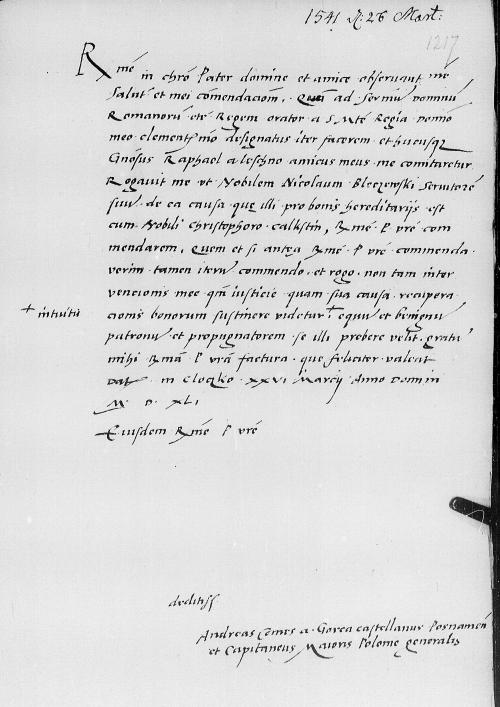 1541 d: 26 Mart:
1217
Rme in chro Pater domine et amice obseruant me
Salut et mei comendaciom, Qum ad Sermu dominu
Romanoru etc Regem orator a S. Mte Regia domo
meo clementmo designatus iter facerem et hucusq
Gnosus Raphael a leschno amicus meus me comitaretur
Rogauit me vt Nobilem Nicolaum Bleczewski Seruitore
suu de ea causa que illi pro bonis hereditarijs est
cum Nobili Christophoro calkstin, Rme P vre com
mendarem, Quem et si antea Rme P vre commenda
verim tamen iteru commendo et rogo non tam inter
vencionis mee qm iusticie quam sua causa recupera
+ intuitu
cionis bonorum sustinere videtur + equu et benignu
patronu et propugnatorem se illi prebere velit gratu
mihi Rma P vra factura que feliciter valeat
Dat in Cloczko XXVI Marcij Anno Domini
M D XLI
Eiusdem Rme P vre
deditiss
Andreas Comes a Gorca castellanus Posnanien
et Capitaneus Maioris Polonie generalis